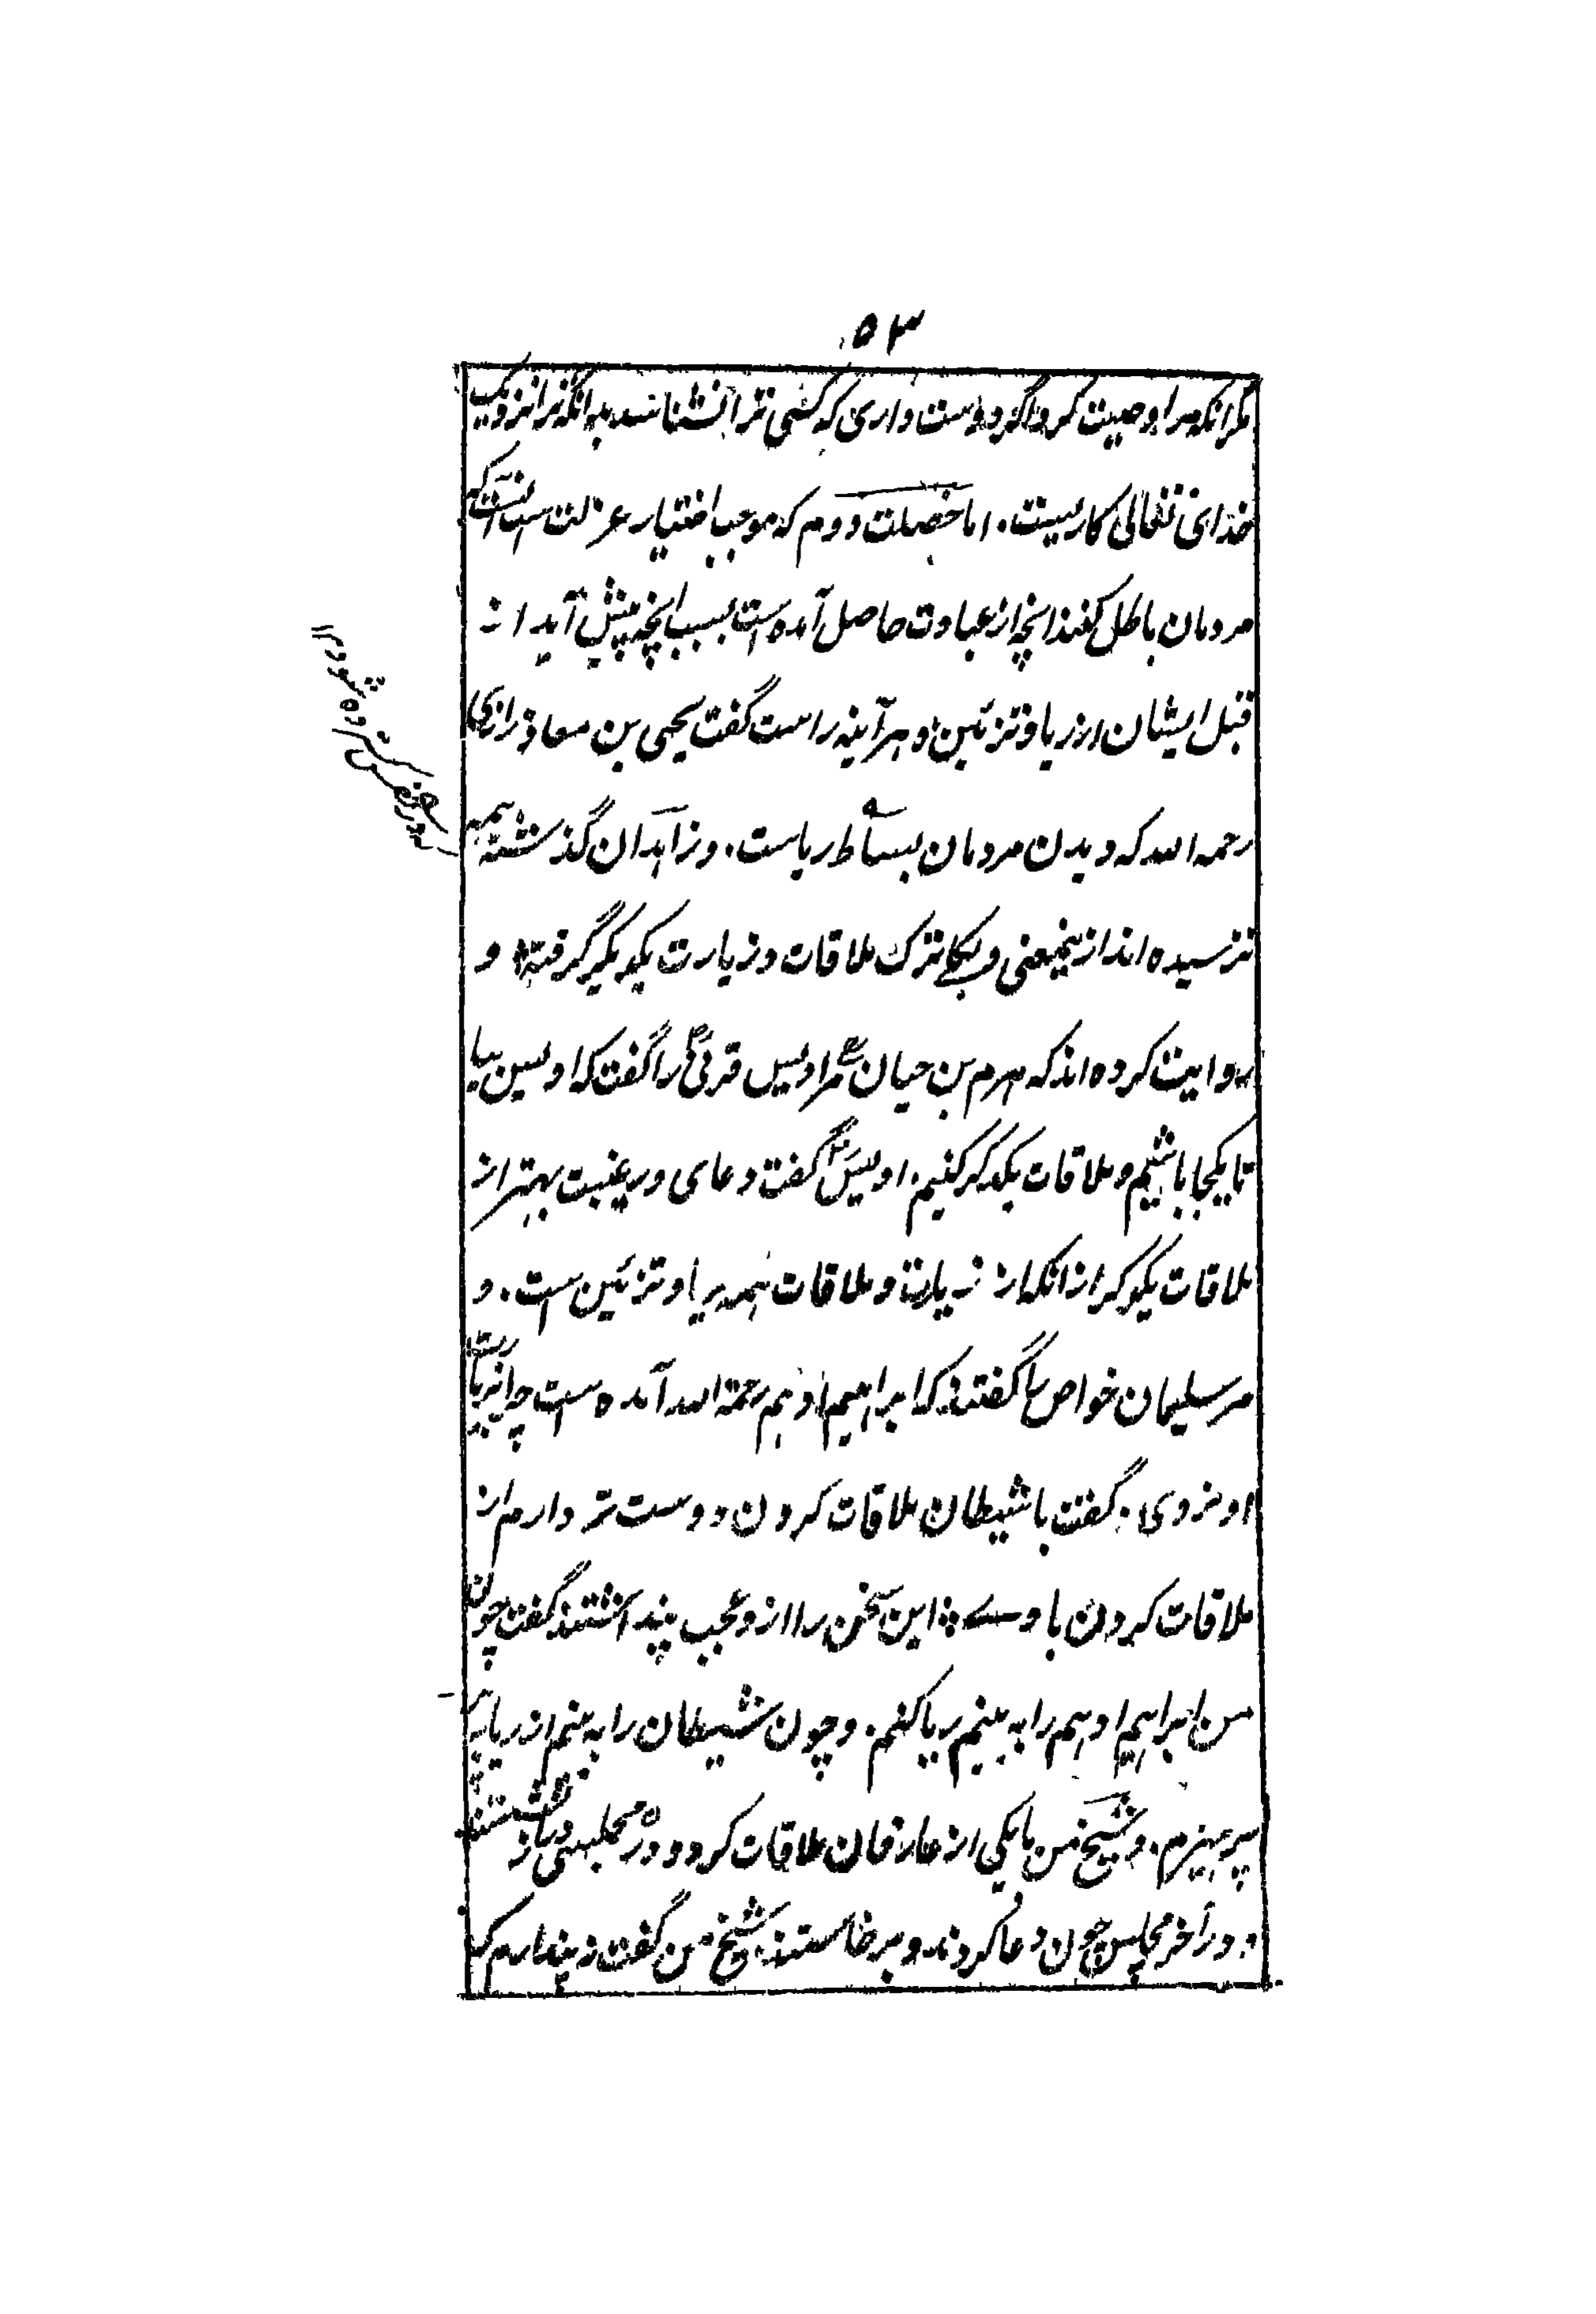 ۵۳
مگر آنکه مرا وصیت کرد اگر دوست داری که کسی ترا نشناسد بدانکه ترا نزدیک
خدای تعالی کاریست۔ اما خصلت دوم که موجب اختیار عزلت است آنست که
مردمان باطل کنند انچه از عبادت حاصل آمده است بسبب انچه پیش آید از
قبل ایشان از ریا و تزئین و هر آینه راست گفت یحیی بن معاذ رازی
رحمه الله که دیدن مردمان بساط ریاست۔ و زاهدان گذشته همه
ترسیده اند ازینمعنی و بیکبار ترک ملاقات و زیارت یکدیگر گرفته و
روایت کرده اند که هرم بن حیان مر اویس قرنی را گفت که اویس بیا
تا یکجا باشیم و ملاقات یکدگر کنیم۔ اویس گفت دعای در غیبت بهتر از
ملاقات یکدیگر از انکه از زیارت و ملاقات همه ریا و تزئین است۔ و
مر سلیمان خواص را گفتند که ابراهیم ادهم رحمة الله آمده است چرا بزیارت
او نروی۔ گفت با شیطان ملاقات کردن دوست تر دارم از
ملاقات کردن با وے این سخن را ازو عجب پنداشتند گفت چون
من ابراهیم ادهم را به بینم ریا کنم۔ و چون شیطان را به بینم از ریا به
پرهیزم۔ و شیخ من با یکی از عارفان ملاقات کرد و در مجلسی دراز نشستند
و در آخر مجلس چون دعا کردند و برخاستند شیخ من گفت نه پندارم که